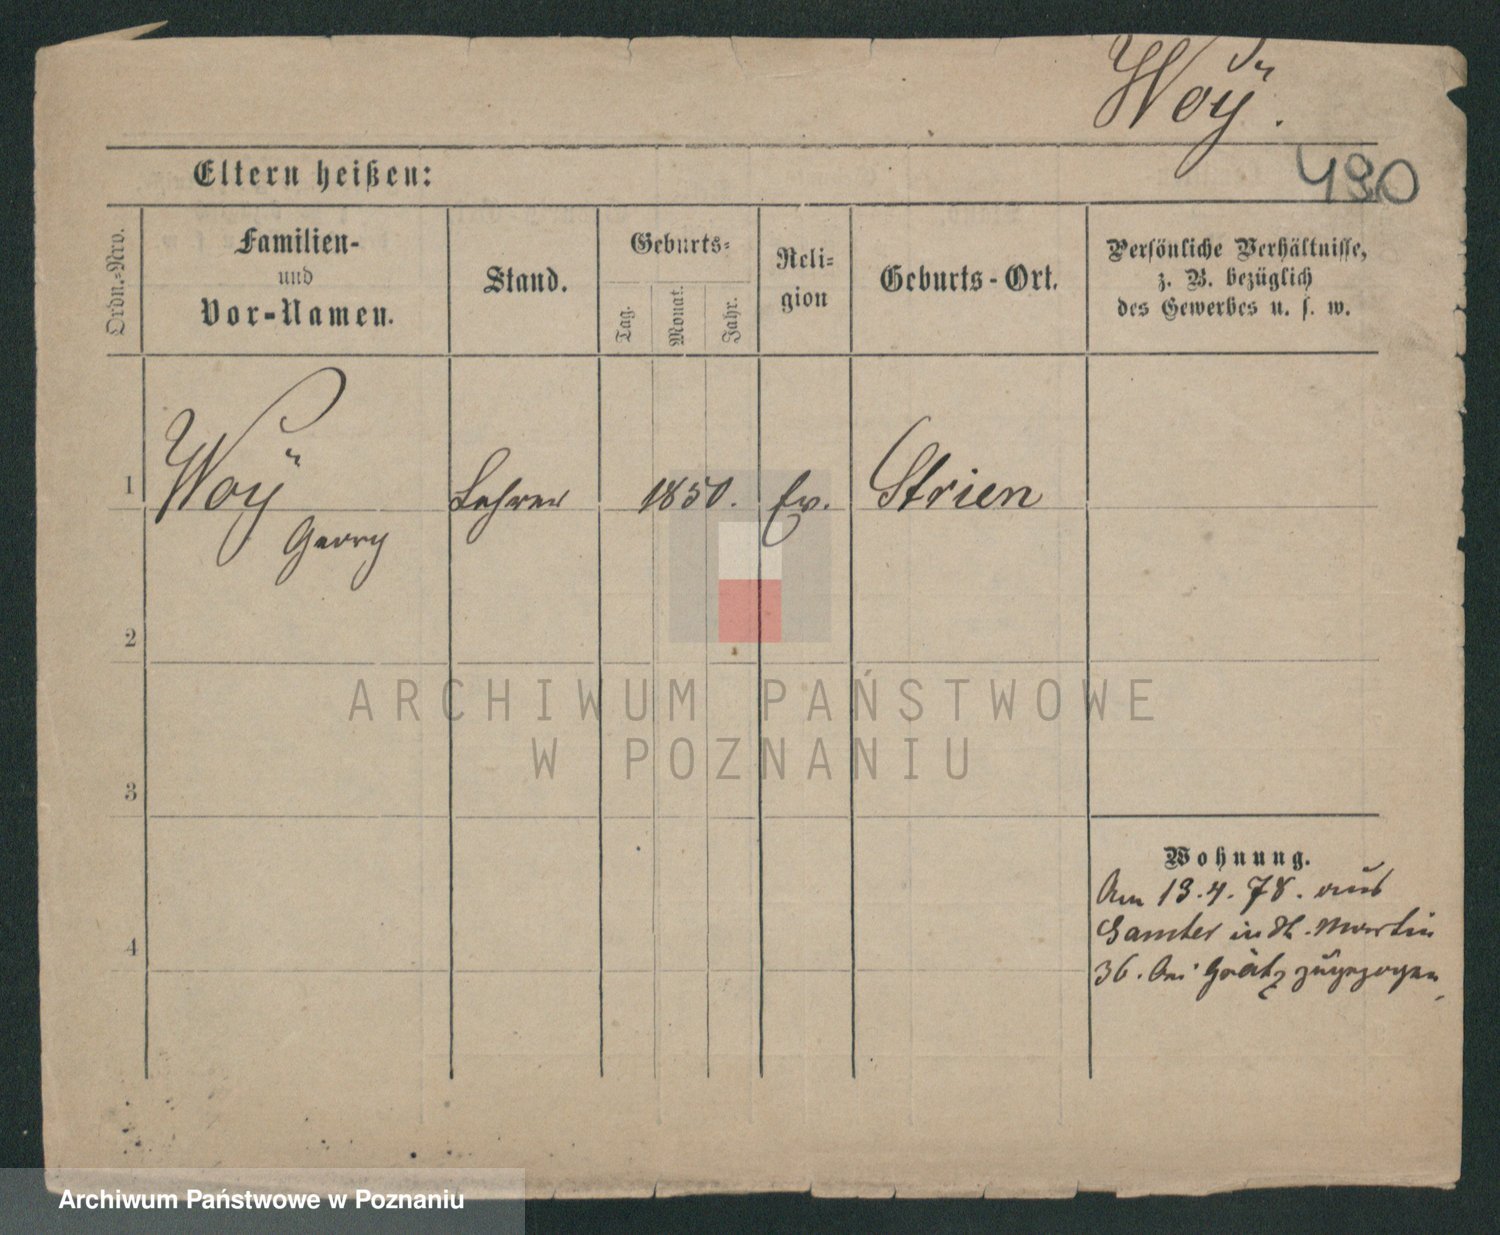 Woÿ.
490
Eltern heißen:
Ordn.-Nro.
Familien-
und
Vor-Namen.
Stand.
Geburts-
Tag.
Monat.
Jahr.
Reli-
gion
Geburts-Ort.
Persönliche Verhältnisse,
z. B. bezüglich
des Gewerbes u. s. w.
1
Woÿ
Georg
Lehrer
1850.
Ev.
Strien
2
ARCHIWUM PAŃSTWOWE
W POZNANIU
3
Wohnung.
Am 13.4.78. aus
Samter in St. Martin
36. bei Grätz zugezogen
4
Archiwum Państwowe w Poznaniu